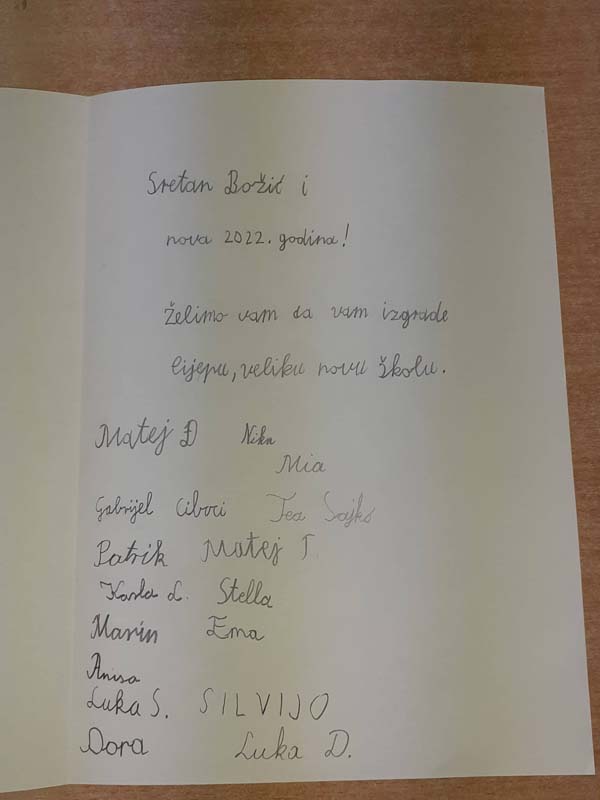 Sretan Božić i
nova 2022. godina!
Želimo vam da vam izgrade
lijepu, veliku novu školu.
Matej Đ Nika
Mia
Gabrijel Ciboci Tea Sajko
Patrik Matej T.
Karla L. Stella
Marin Ema
Anisa
Luka S. SILVIJO
Dora Luka D.